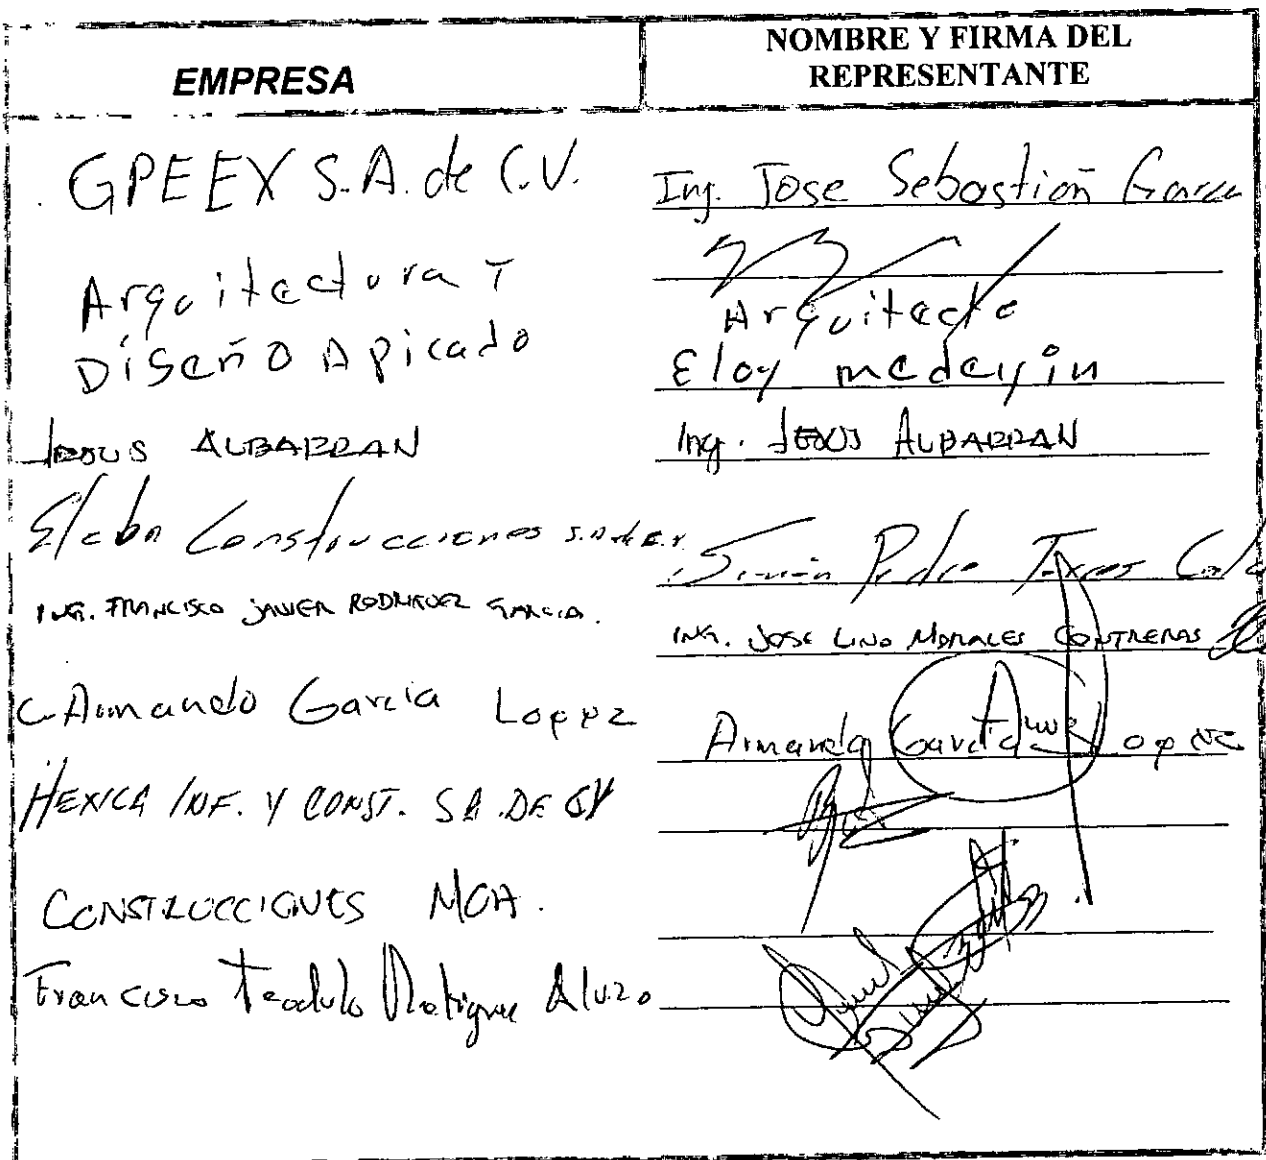 EMPRESA
NOMBRE Y FIRMA DEL
REPRESENTANTE
GPEEX S.A. de C.V.
Ing. Jose Sebastian Garcia
Arquitectura y
Diseño Apicado
Arquitecto
Eloy medeyin
JESUS ALBARRAN
Ing. JESUS ALBARRAN
Construcciones S.A. de C.V.
Simón Pedro Torres
ING. FRANCISCO JAVIER RODRIGUEZ GARCIA.
ING. JOSE LINO MORALES CONTRERAS
C. Armando Garcia Lopez
Armando Garcia Lopez
HEXICA INF. Y CONST. SA. DE CV
CONSTRUCCIONES MCH.
Francisco Teodulo